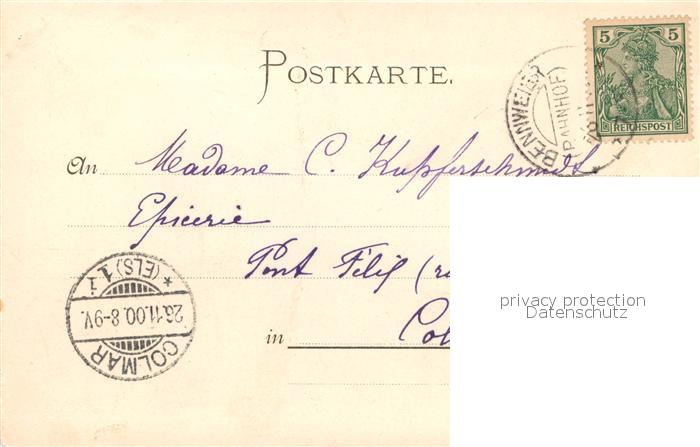 POSTKARTE.
5 5
REICHSPOST
BENNWEIER
(BAHNHOF)
An Madame C. Kupferschmidt
Epicerie
Pont
in Col
COLMAR
26.11.00.8-9V.
* (ELS) 1 i
privacy protection
Datenschutz